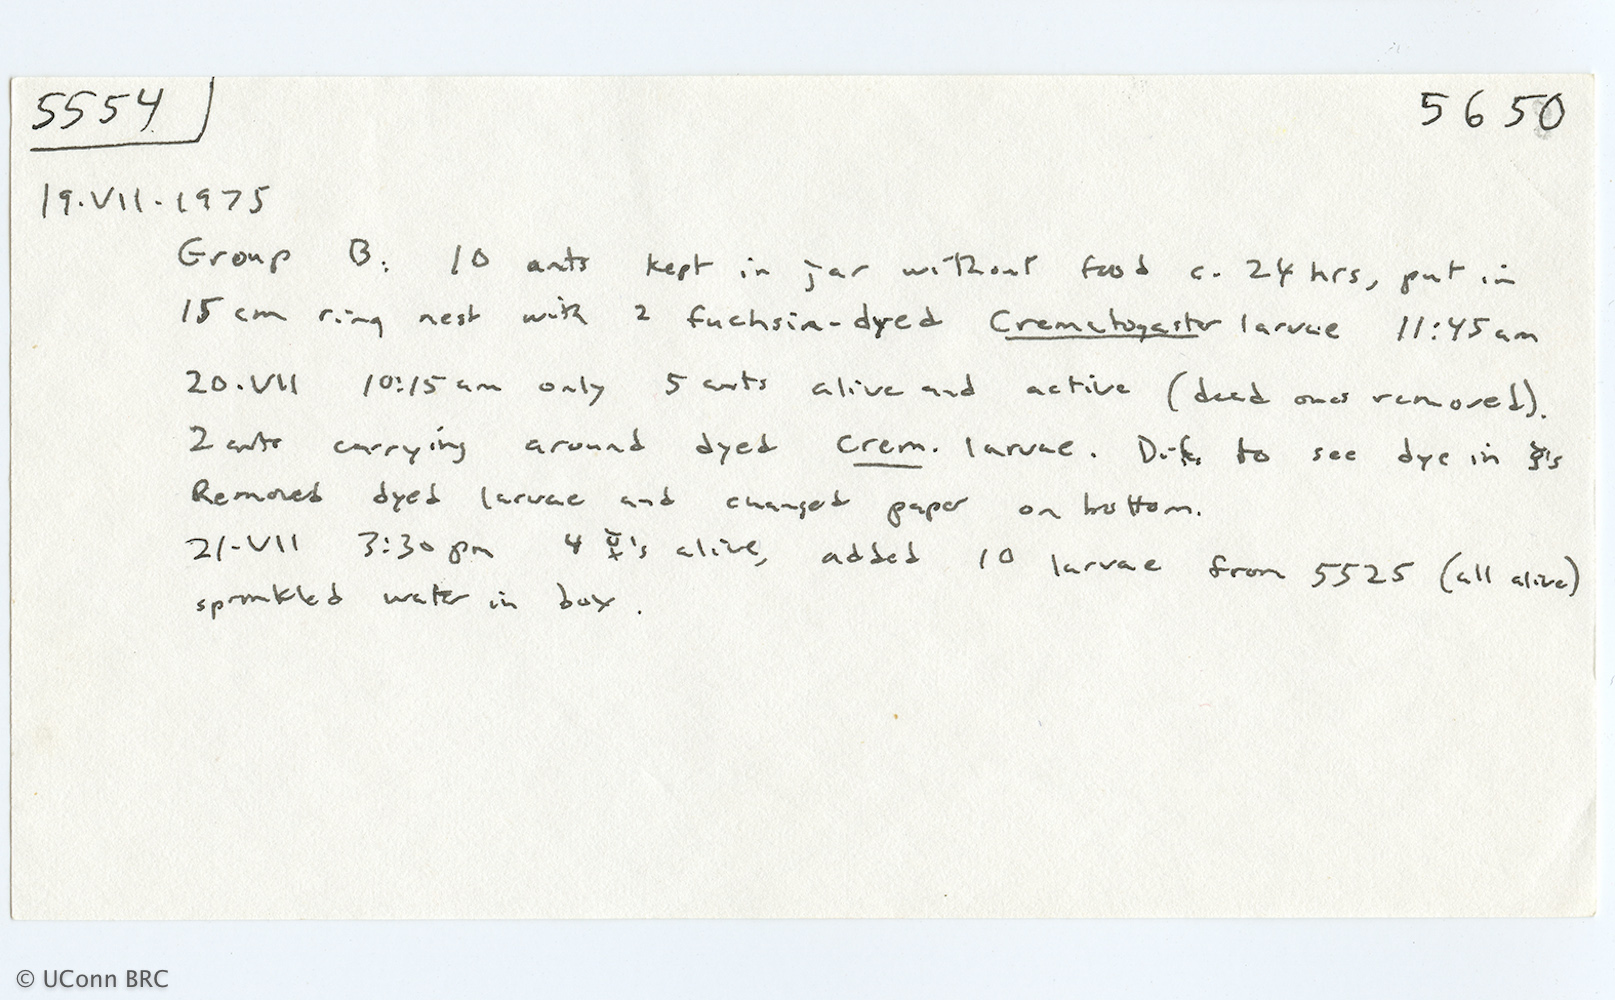 5554 5650
19.VII.1975
Group B. 10 ants kept in jar without food c. 24 hrs, put in
15 cm ring nest with 2 fuchsin-dyed Crematogaster larvae 11:45 am
20.VII 10:15 am only 5 ants alive and active (dead ones removed).
2 ants carrying around dyed Crem. larvae. to see dye in ☿'s
Removed dyed larvae and changed paper on bottom.
21-VII 3:30 pm 4 ☿'s alive, added 10 larvae from 5525 (all alive)
sprinkled water in box.
© UConn BRC